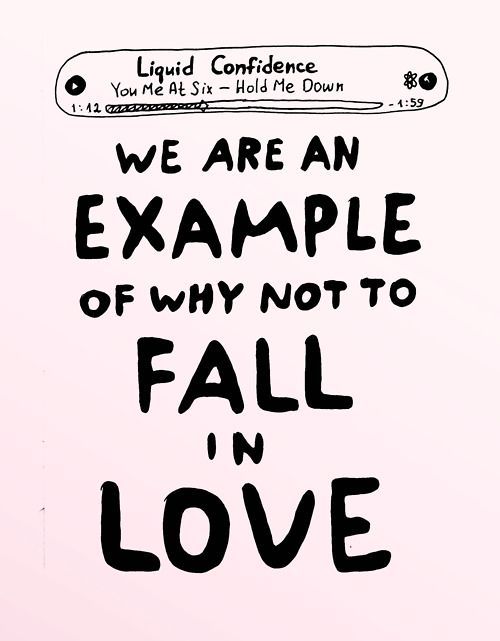 Liquid Confidence
You Me At Six – Hold Me Down
1:12 - 1:59
WE ARE AN
EXAMPLE
OF WHY NOT TO
FALL
IN
LOVE